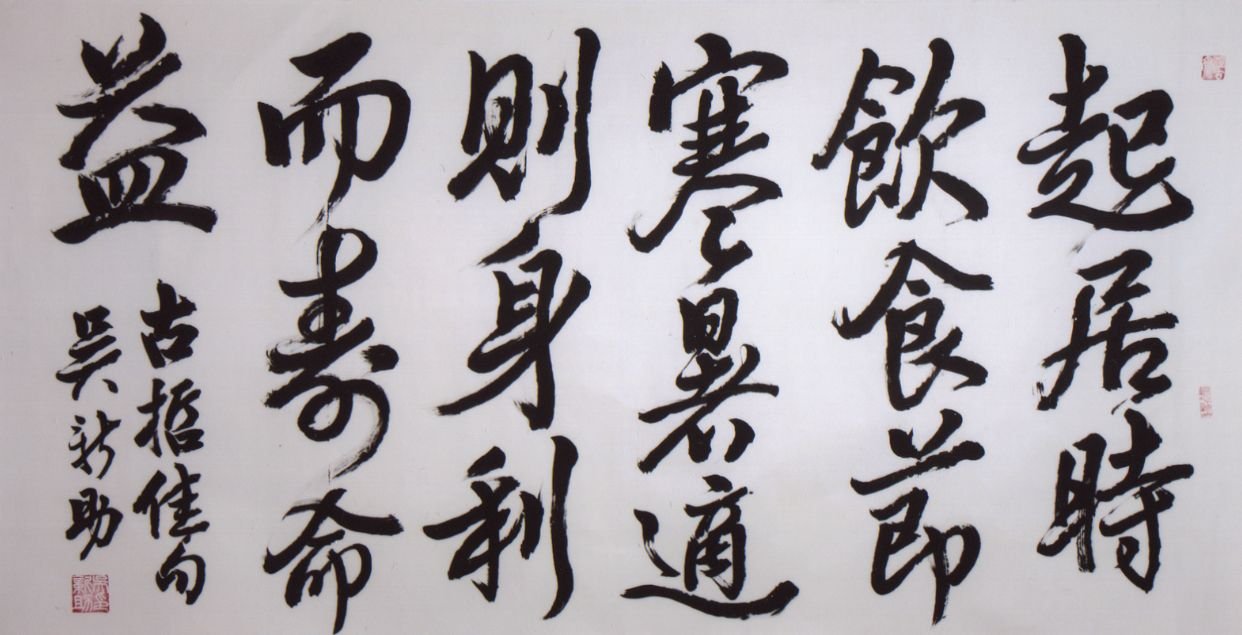 起居時
飲食節
寒暑適
則身利
而壽命
益
古哲佳句
吳新助